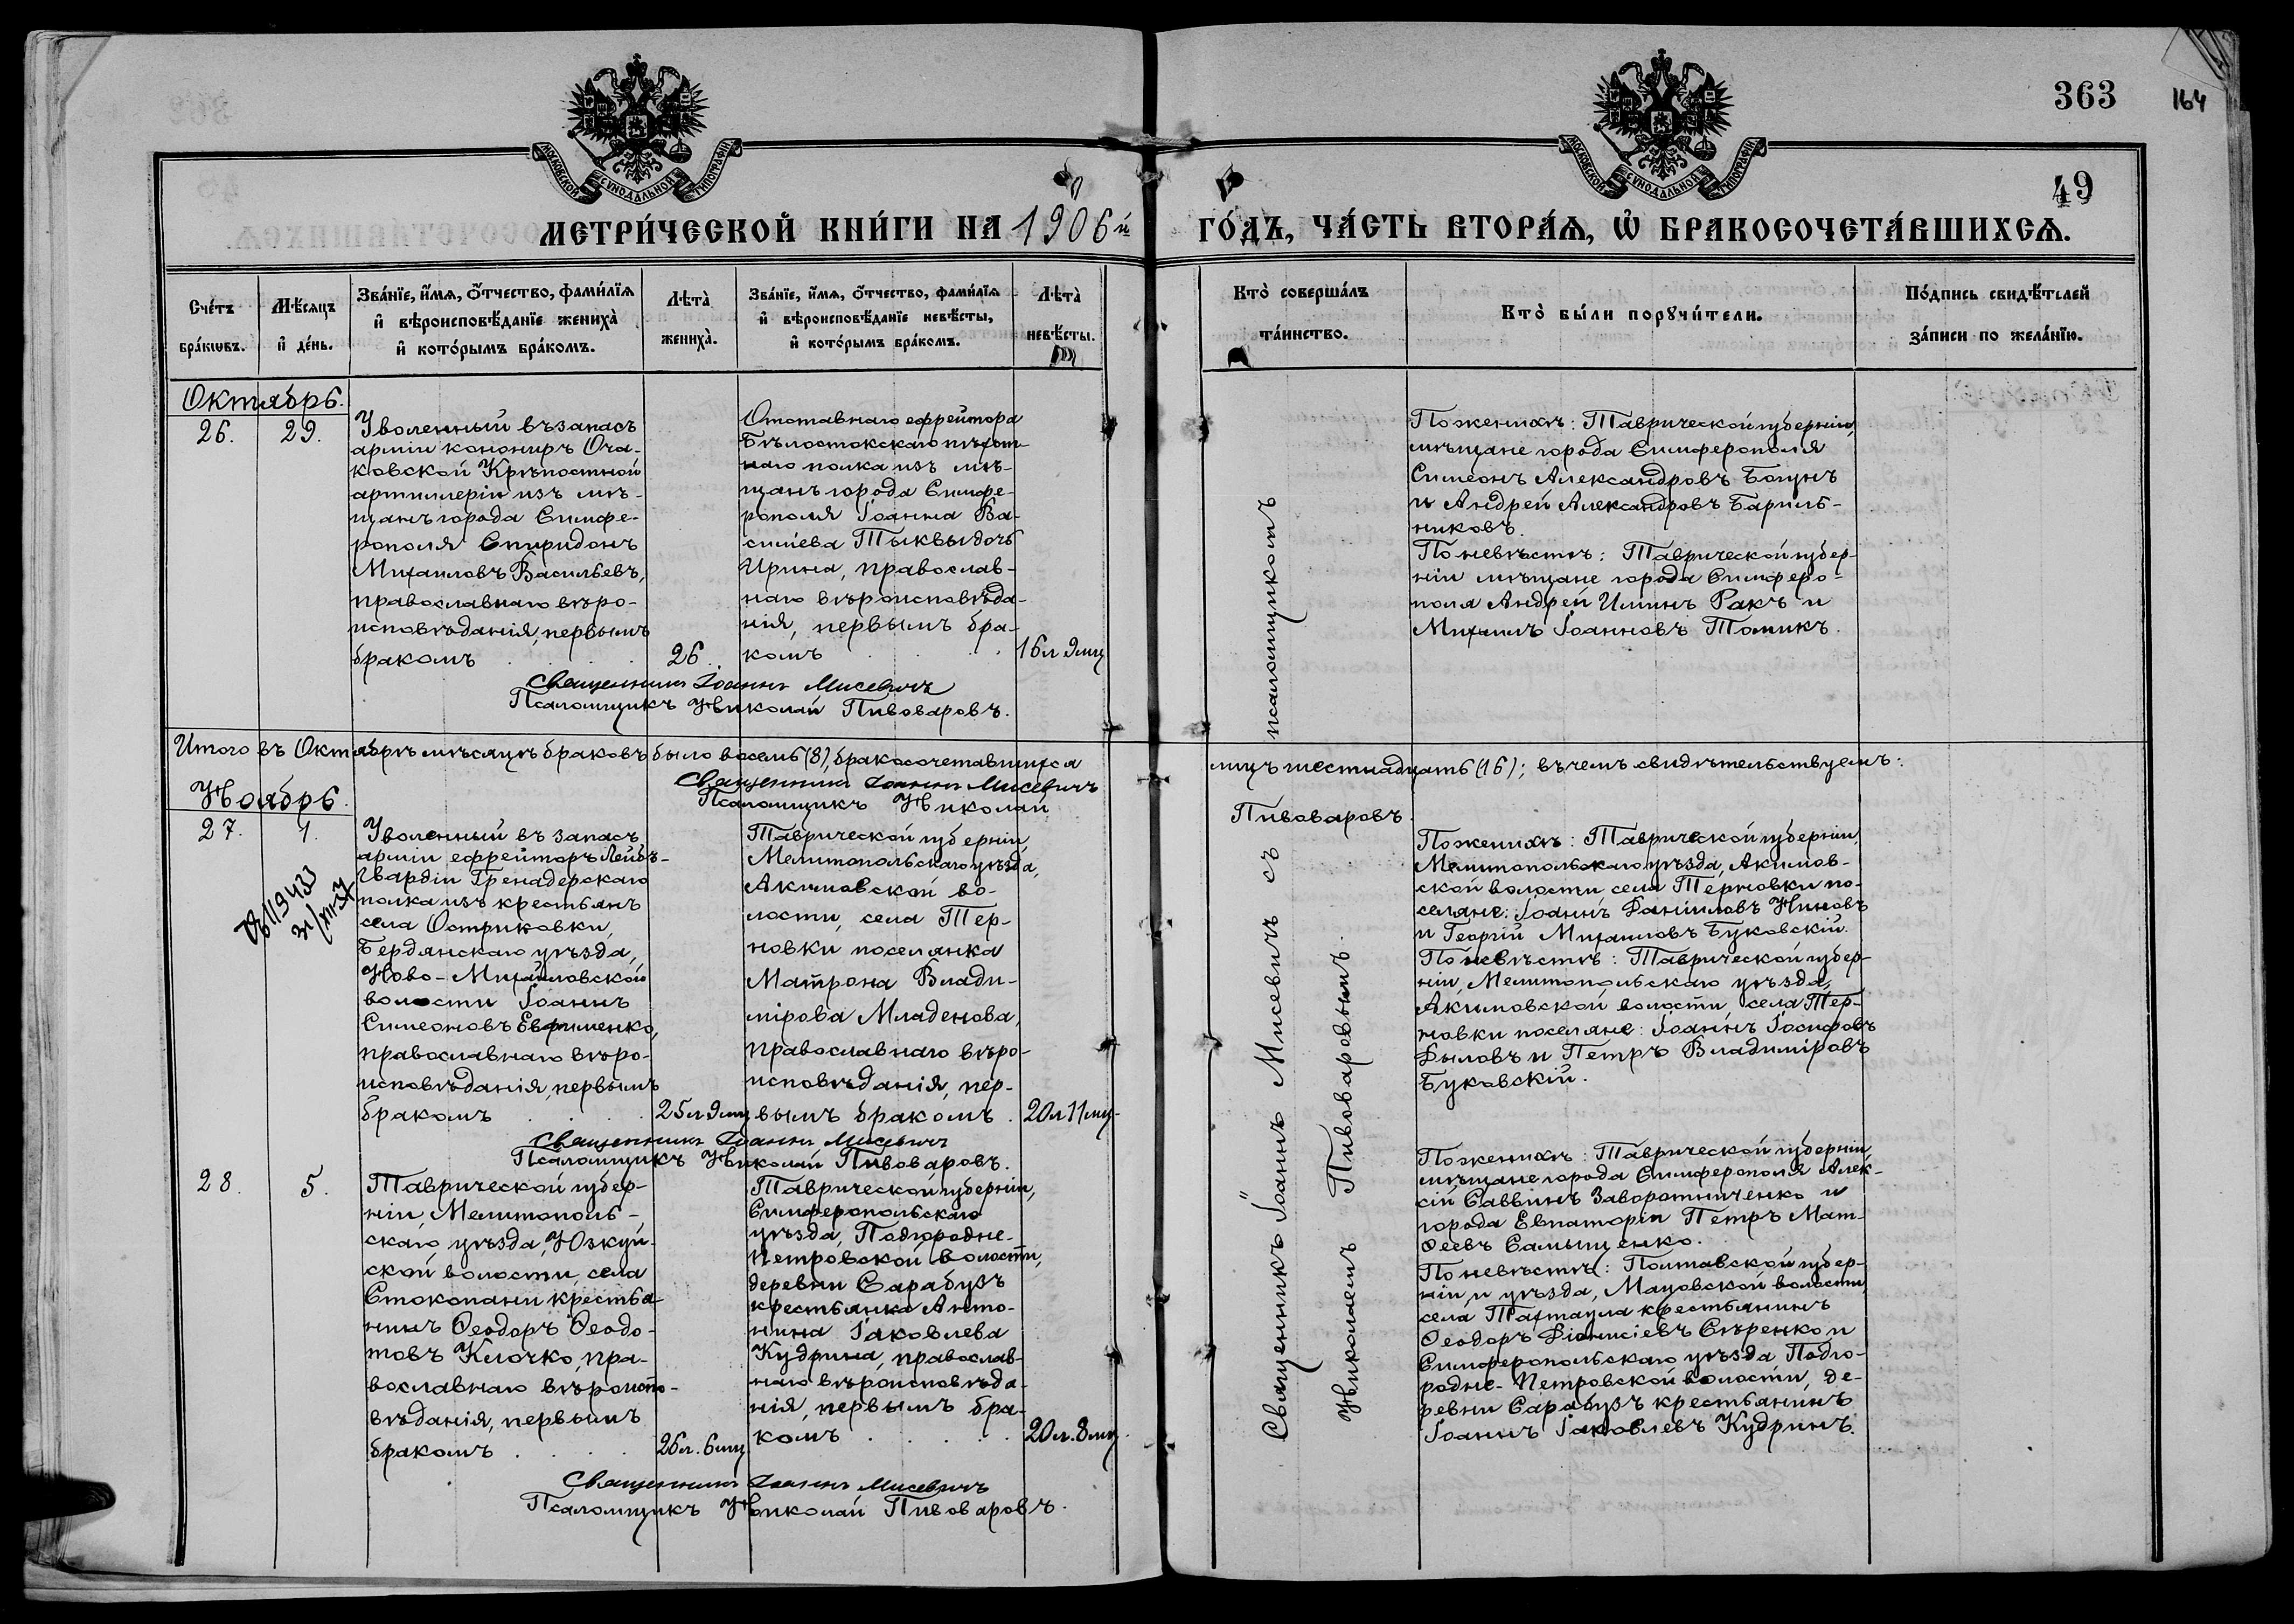 363
164
49
МОСКОВСКОЙ СѴНОДАЛЬНОЙ ТИПОГРАФІИ
МОСКОВСКОЙ СѴНОДАЛЬНОЙ ТИПОГРАФІИ
МЕТРИ́ЧЕСКОЙ КНИ́ГИ НА 1906й ГО́ДЪ, ЧА́СТЬ ВТОРА́Ѧ, Ѽ БРАКОСОЧЕТА́ВШИХСѦ.
Сче́тъ
бра́кѡвъ.
Мѣ́сяцъ
и҆ де́нь.
Зва́нїе, и҆́мѧ, ѻ҆́тчество, фами́лїѧ
и҆ вѣроисповѣ́данїе жениха̀
и҆ кото́рымъ бра́комъ.
Лѣта̀
жениха̀.
Зва́нїе, и҆́мѧ, ѻ҆́тчество, фами́лїѧ
и҆ вѣроисповѣ́данїе невѣ́сты,
и҆ кото́рымъ бра́комъ.
Лѣта̀
невѣ́сты.
Кто̀ соверша́лъ
та́инство.
Кто̀ бы́ли порꙋчи́тели.
По́дпись свидѣ́телей
за́писи по жела́нїю.
Октябрь.
26.
29.
Уволенный въ запасъ
арміи конониръ Оча-
ковской Крѣпостной
артиллеріи изъ мѣ-
щанъ города Симфе-
рополя Спиридонъ
Михаиловъ Васильевъ,
православнаго вѣро-
исповѣданія, первымъ
бракомъ
26.
Отставнаго ефрейтора
Бѣлостокскаго пѣхот-
наго полка изъ мѣ-
щанъ города Симфе-
рополя Іоанна Ва-
силіева Тыквы дочь
Ирина, православ-
наго вѣроисповѣда-
нія, первымъ бра-
комъ
16л 9мц
По женихѣ: Таврической губерніи,
мѣщане города Симферополя
Симеонъ Александровъ Богунъ
и Андрей Александровъ Бариль-
никовъ.
По невѣстѣ: Таврической губер-
ніи мѣщане города Симферо-
поля Андрей Илиинъ Ракъ и
Михаилъ Іоанновъ Томикъ.
Священникъ Іоаннъ Мисевичъ
Псаломщикъ Николай Пивоваровъ.
Итого въ Октябрѣ мѣсяцѣ браковъ было восемь (8), бракосочетавшихся
лицъ шестнадцать (16); въ чемъ свидѣтельствуемъ:
Священникъ Іоаннъ Мисевичъ
Псаломщикъ Николай
Пивоваровъ.
Ноябрь.
27.
1.
Уволенный въ запасъ
арміи ефрейторъ Лейбъ-
Гвардіи Гренадерскаго
полка изъ крестьянъ
села Остриковки,
Бердянскаго уѣзда,
Ново-Михайловской
волости Іоаннъ
Симеоновъ Евфименко,
православнаго вѣро-
исповѣданія, первымъ
бракомъ
25л 9мц
Таврической губерніи,
Мелитопольскаго уѣзда,
Акимовской во-
лости, села Тер-
новки поселянка
Матрона Влади-
мірова Младенова,
православнаго вѣро-
исповѣданія, пер-
вымъ бракомъ.
20л 11мц
По женихѣ: Таврической губерніи,
Мелитопольскаго уѣзда, Акимов-
ской волости села Терновки по-
селяне: Іоаннъ Даніиловъ Ниновъ
и Георгій Михаиловъ Буковскій.
По невѣстѣ: Таврической губер-
ніи, Мелитопольскаго уѣзда,
Акимовской волости, села Тер-
новки поселяне: Іоаннъ Іосифовъ
Дыловъ и Петръ Владиміровъ
Буковскій.
Священникъ Іоаннъ Мисевичъ
Псаломщикъ Николай Пивоваровъ.
28.
5.
Таврической губер-
ніи, Мелитополь-
скаго уѣзда, Юзкуй-
ской волости, села
Стокопани крестья-
нинъ Ѳеодоръ Ѳеодо-
товъ Клочко, пра-
вославнаго вѣроиспо-
вѣданія, первымъ
бракомъ
26л. 6мц
Таврической губерніи,
Симферопольскаго
уѣзда, Подгородне-
Петровской волости,
деревни Сарабузъ
крестьянка Анто-
нина Іаковлева
Кудрина, православ-
наго вѣроисповѣда-
нія, первымъ бра-
комъ
20л. 8мц.
По женихѣ: Таврической губерніи,
мѣщане города Симферополя Алек-
сій Саввинъ Заворотниченко и
города Евпаторіи Петръ Мат-
ѳеевъ Самыщенко.
По невѣстѣ: Полтавской губер-
ніи и уѣзда, Мачовской волости,
села Тахтаула крестьянинъ
Ѳеодоръ Діонисіевъ Сѣренко и
Симферопольскаго уѣзда, Подго-
родне-Петровской волости, де-
ревни Сарабузъ крестьянинъ
Іоаннъ Іаковлевъ Кудринъ.
Священникъ Іоаннъ Мисевичъ
Псаломщикъ Николай Пивоваровъ.
Священникъ Іоаннъ Мисевичъ съ псаломщикомъ
Николаемъ Пивоваровымъ.